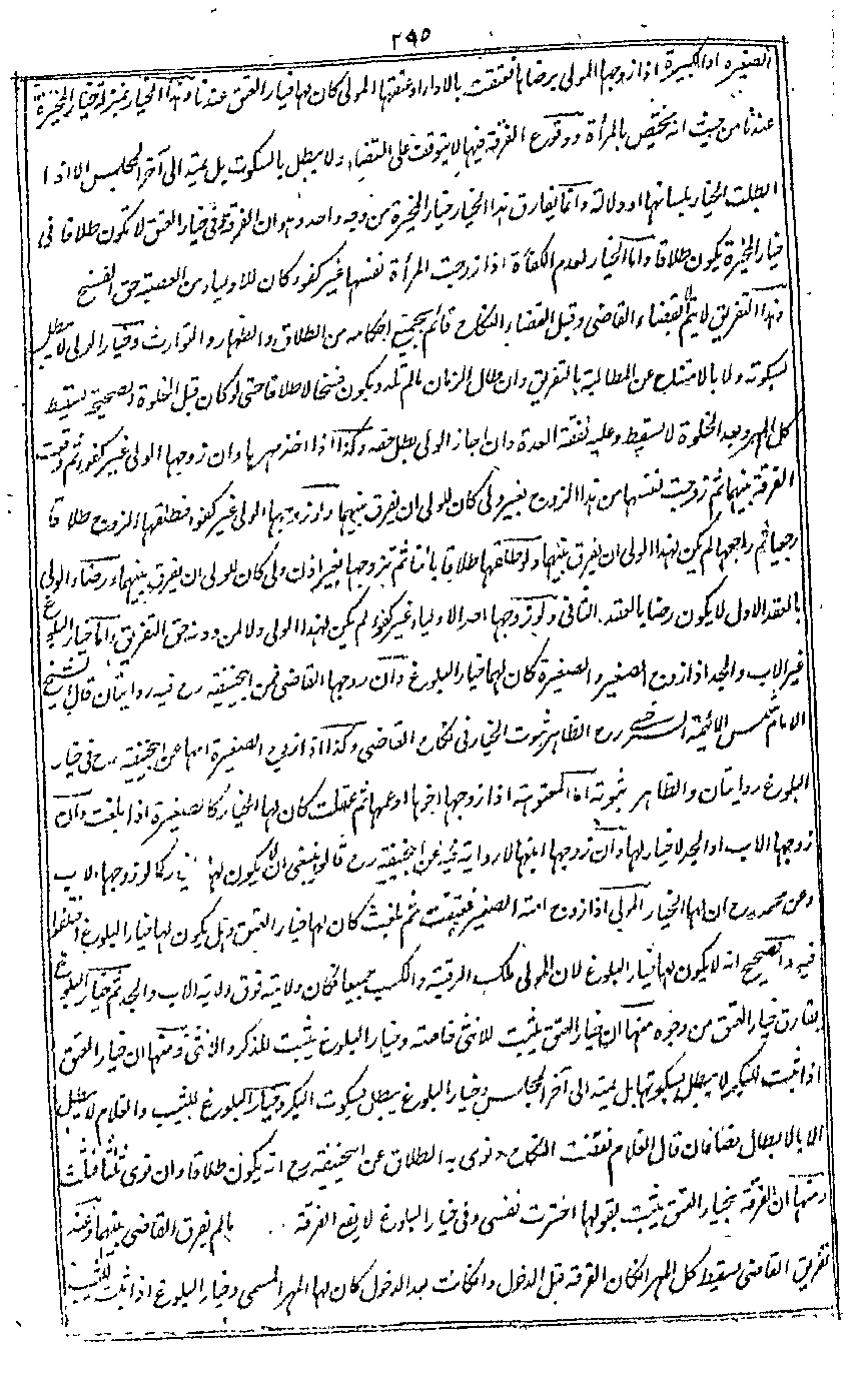 ٢٩٥
الصغيرة او الكبيرة اذا زوجها المولى برضاها فعتقت بالاداء او عتقها المولى كان لها خيار العتق عندنا وهذا الخيار بمنزلة خيار المخيرة
عندنا من حيث انه يختص بالمرأة ووقوع الفرقة فيها لا يتوقف على القضاء ولا يبطل بالسكوت بل يمتد الى آخر المجلس الا اذا
ابطلت الخيار بلسانها او دلالة وانما يفارق هذا الخيار خيار المخيرة من وجه واحد وهو ان الفرقة في خيار العتق لا تكون طلاقا في
خيار المخيرة يكون طلاقا واما الخيار لعدم الكفأة اذا زوجت المرأة نفسها غير كفو كان للاولياء من العصبة حق الفسخ
وهذا التفريق لا يتم الا بقضاء القاضى وقبل القضاء النكاح قائم بجميع احكامه من الطلاق والظهار والتوارث وخيار الولى لا يبطل
بسكوته ولا بالامتناع عن المطالبة بالتفريق وان طال الزمان مالم تلد ويكون فسخا لا طلاقا حتى لو كان قبل الخلوة الصحيحة يسقط
كل المهر وبعد الخلوة لا يسقط وعليه نفقة العدة وان اجاز الولى بطل حقه وكذا اذا اخذ مهرها وان زوجها الولى غير كفو ثم وقعت
الفرقة بينهما ثم زوجت نفسها من هذا الزوج بغير ولى كان للولى ان يفرق بينهما ولو زوجها الولى غير كفو فطلقها الزوج طلاقا
رجعيا ثم راجعها لم يكن لهذا الولى ان يفرق بينهما ولو طلقها طلاقا بائنا ثم تزوجها بغير اذن ولى كان للولى ان يفرق بينهما ورضاء الولى
بالعقد الاول لا يكون رضا بالعقد الثانى ولو زوجها احد الاولياء غير كفو لم يكن لهذا الولى ولا لمن دونه حق التفريق واما خيار البلوغ
غير الاب والجد اذا زوج الصغير والصغيرة كان لهما خيار البلوغ وان زوجها القاضى فعن ابيحنيفة رح فيه روايتان قال الشيخ
الامام شمس الائمة السرخسى رح الظاهر ثبوت الخيار فى نكاح القاضى وكذا اذا زوج الصغيرة امها عن ابيحنيفة رح فى خيار
البلوغ روايتان والظاهر ثبوته اما المعتوهة اذا زوجها اخوها او عمها ثم عقلت كان لها الخيار كالصغيرة اذا بلغت وان
زوجها الاب او الجد لا خيار لها وان زوجها ابنها لا رواية فيه عن ابيحنيفة رح قالوا ينبغى ان لا يكون لها خيار كما لو زوجها الاب
وعن محمد رح ان لها الخيار المولى اذا زوج امته الصغيرة فعتقت ثم بلغت كان لها خيار العتق وهل يكون لها خيار البلوغ اختلفوا
فيه والصحيح انه لا يكون لها خيار البلوغ لان المولى ملك الرقبة والكسب جميعا فكان ولايته فوق ولاية الاب والجد ثم خيار البلوغ
يفارق خيار العتق من وجوه منها ان خيار العتق يثبت للانثى خاصة وخيار البلوغ يثبت للذكر والانثى ومنها ان خيار العتق
اذا ثبت للبكر لا يبطل بسكوتها بل يمتد الى آخر المجلس وخيار البلوغ يبطل بسكوت البكر وخيار البلوغ للثيب والغلام لا يبطل
الا بالابطال نصا فان قال الغلام فسخت النكاح ونوى به الطلاق عن ابيحنيفة رح انه يكون طلاقا وان نوى ثلثا فثلث
ومنها ان الفرقة بخيار العتق يثبت بقولها اخترت نفسى وفى خيار البلوغ لا يقع الفرقة مالم يفرق القاضى بينهما وعند
تفريق القاضى يسقط كل المهر ان كان الفرقة قبل الدخول وان كانت بعد الدخول كان لها المهر المسمى وخيار البلوغ اذا ثبت للثيب